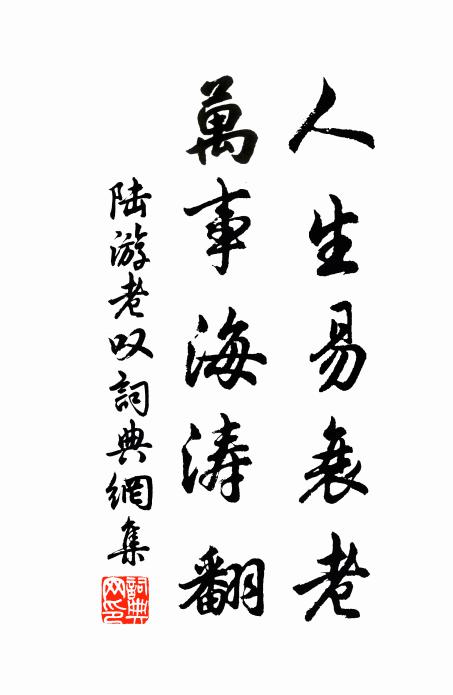 人生易衰老
萬事海涛翻
陆游老叹詞典網集
詞典网印